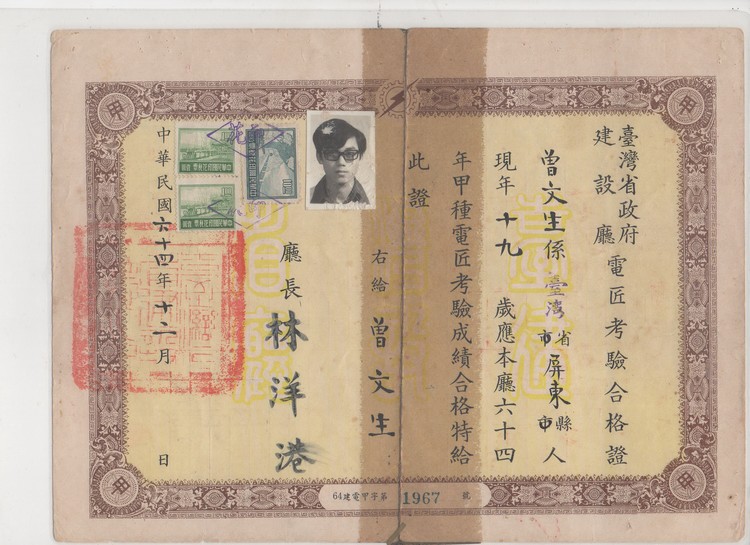 臺灣省政府建設廳電匠考驗合格證
曾文生係臺灣省市屏東縣市人
現年十九歲應本廳六十四
年甲種電匠考驗成績合格特給
此證
右給曾文生
廳長林洋港
中華民國六十四年十二月 日
64建電甲字第 1967 號